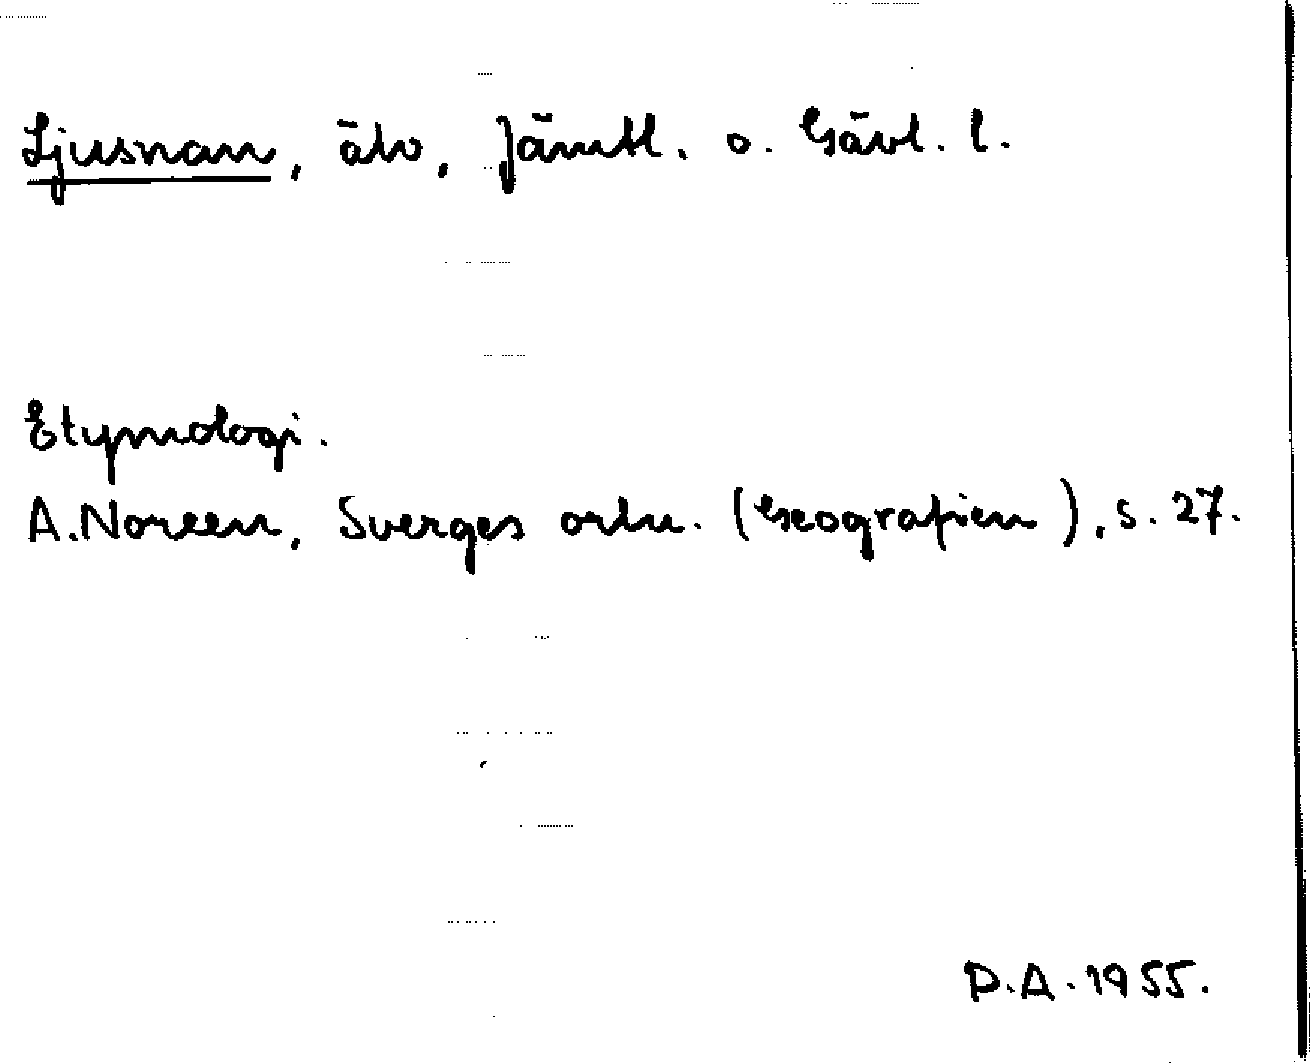 Ljusnan, älv, Jämtl. o. Gävl. l.
Etymologi.
A. Noreen, Sverges ortn. (Geografien), s. 27.
D.A. 1955.